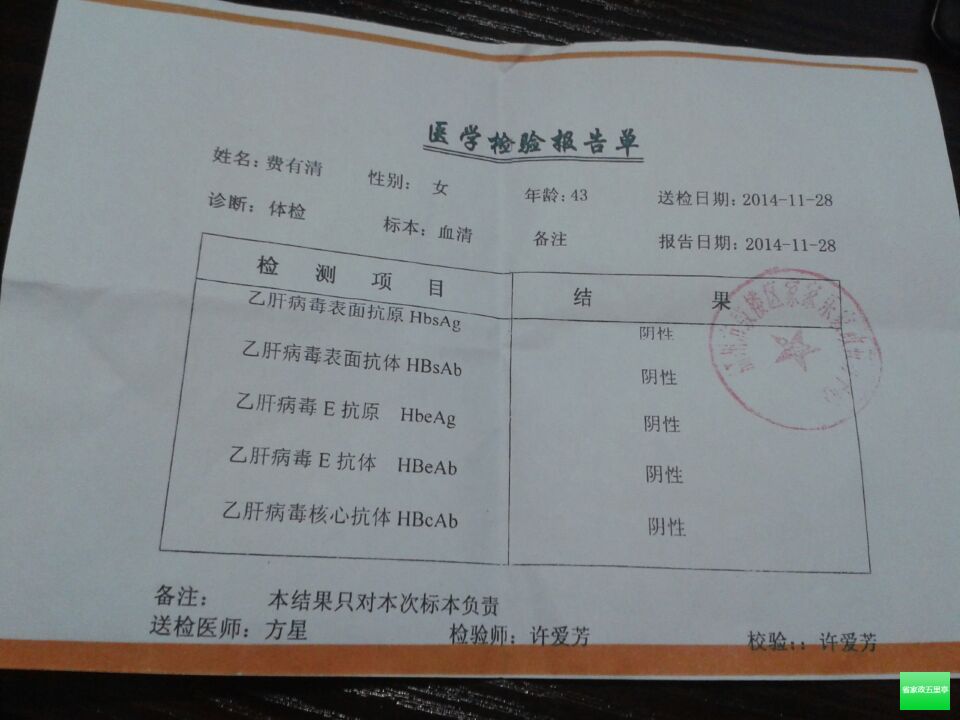 医学检验报告单
姓名：费有清 性别： 女 年龄：43 送检日期：2014-11-28
诊断：体检 标本：血清 备注 报告日期：2014-11-28
检 测 项 目 结 果
乙肝病毒表面抗原 HbsAg 阴性
乙肝病毒表面抗体 HBsAb 阴性
乙肝病毒 E 抗原 HbeAg 阴性
乙肝病毒 E 抗体 HBeAb 阴性
乙肝病毒核心抗体 HBcAb 阴性
备注： 本结果只对本次标本负责
送检医师：方星 检验师：许爱芳 校验：：许爱芳
省家政五里亭